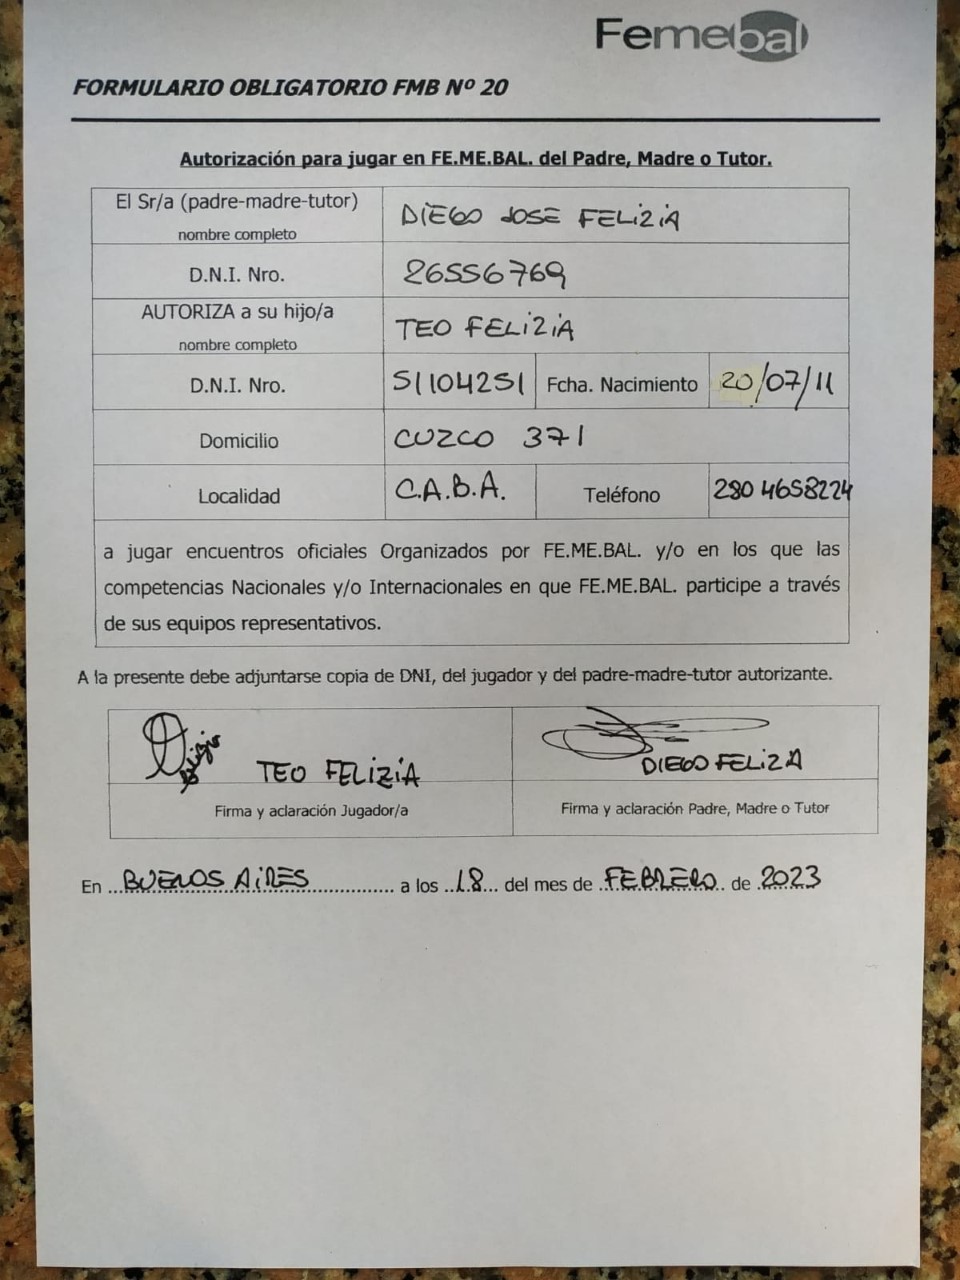 Femebal
FORMULARIO OBLIGATORIO FMB Nº 20
Autorización para jugar en FE.ME.BAL. del Padre, Madre o Tutor.
El Sr/a (padre-madre-tutor)
nombre completo
DIEGO JOSE FELIZIA
D.N.I. Nro.
26556769
AUTORIZA a su hijo/a
nombre completo
TEO FELIZIA
D.N.I. Nro.
51104251
Fcha. Nacimiento
20/07/11
Domicilio
CUZCO 371
Localidad
C.A.B.A.
Teléfono
280 4658224
a jugar encuentros oficiales Organizados por FE.ME.BAL. y/o en los que las
competencias Nacionales y/o Internacionales en que FE.ME.BAL. participe a través
de sus equipos representativos.
A la presente debe adjuntarse copia de DNI, del jugador y del padre-madre-tutor autorizante.
TEO FELIZIA
DIEGO FELIZIA
Firma y aclaración Jugador/a
Firma y aclaración Padre, Madre o Tutor
En ...BUENOS AIRES................ a los ..18... del mes de ..FEBRERO.. de .2023